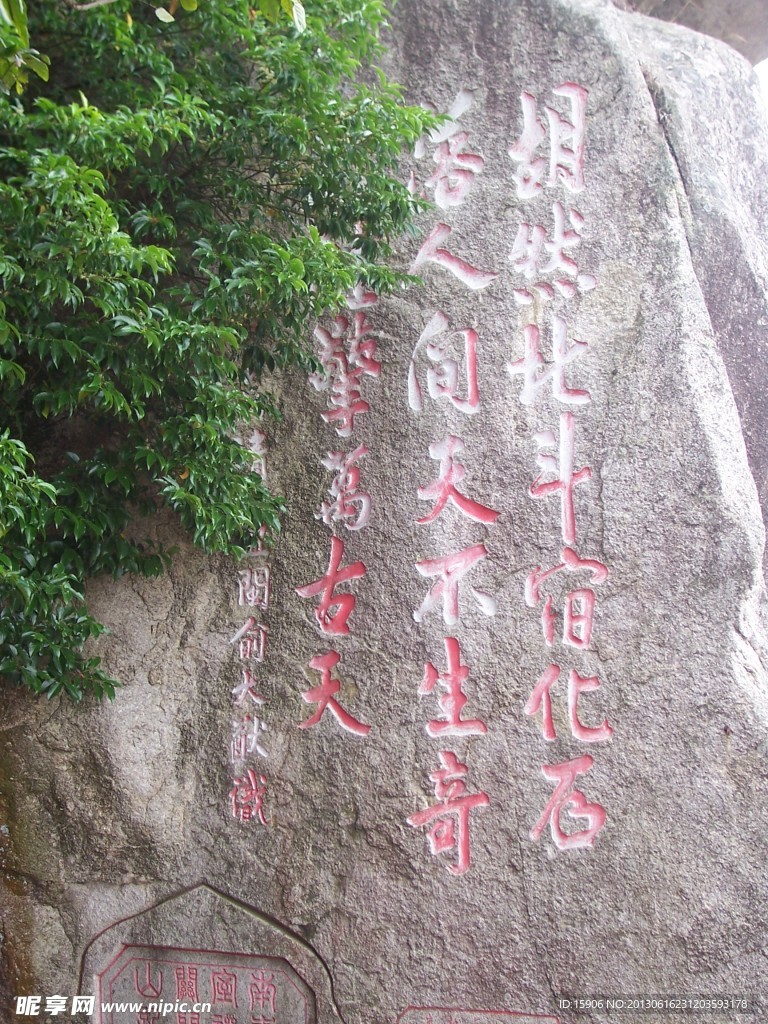 胡然北斗宿化石
落人间天不生奇
擎萬古天
閩俞大猷識
南
關
山
昵享网 www.nipic.cn
ID:15906 NO:20130616231203593178